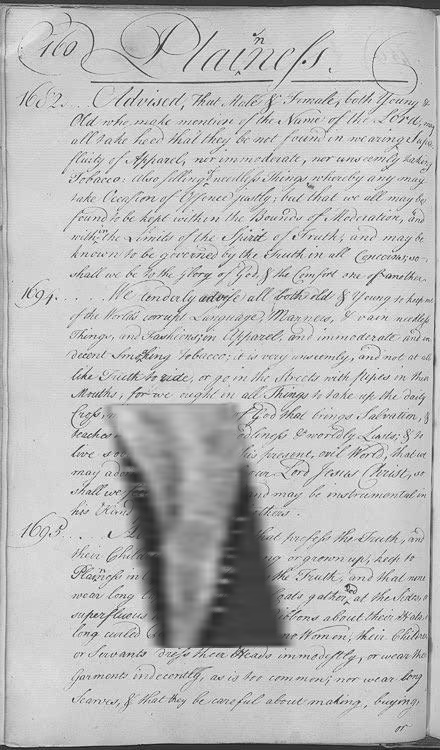 160 Plainness.
1682... Advised, that Male & Female, both Young &
Old who make mention of the Name of the Lord, may
all take heed that they be not found in wearing Super
fluity of Apparel, nor immoderate, nor unseemly taking
Tobacco: also selling needless Things whereby any may
take Occasion of Offence justly; but that we all may be
found to be kept within the Bounds of Moderation, and
within the Limits of the Spirit of Truth; and may be
known to be governed by the Truth in all Concerns, so
shall we be to the Glory of God, & the Comfort one of another.
1694. .... We tenderly advise all both old & Young to keep out
of the World's corrupt Language, Manners, & vain needless
Things, and Fashions in Apparel; and immoderate and in
decent Smoking Tobacco; it is very unseemly, and not at all
like Truth to ride, or go in the Streets with pipes in their
Mouths, for we ought in all Things to take up the daily
Cross, of God that brings Salvation, &
teaches worldly Lusts; & to
live present, evil World; that we
may our Lord Jesus Christ, so
shall we and may be instrumental in
his Hand others.
1695. .. that profess the Truth, and
their Children or grown up, keep to
Plainness in the Truth; and that none
wear long gathered at the Sides, or
superfluous about their Hats, or
long curled no Women, their Children
or Servants dress their Heads immodestly, or wear their
Garments indecently, as is too common; nor wear long
Scarves, & that they be careful about making, buying,
or